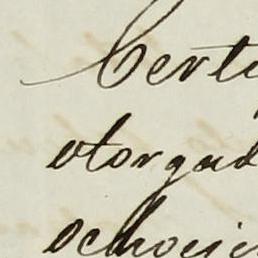 Certi
otorgad
ochocie